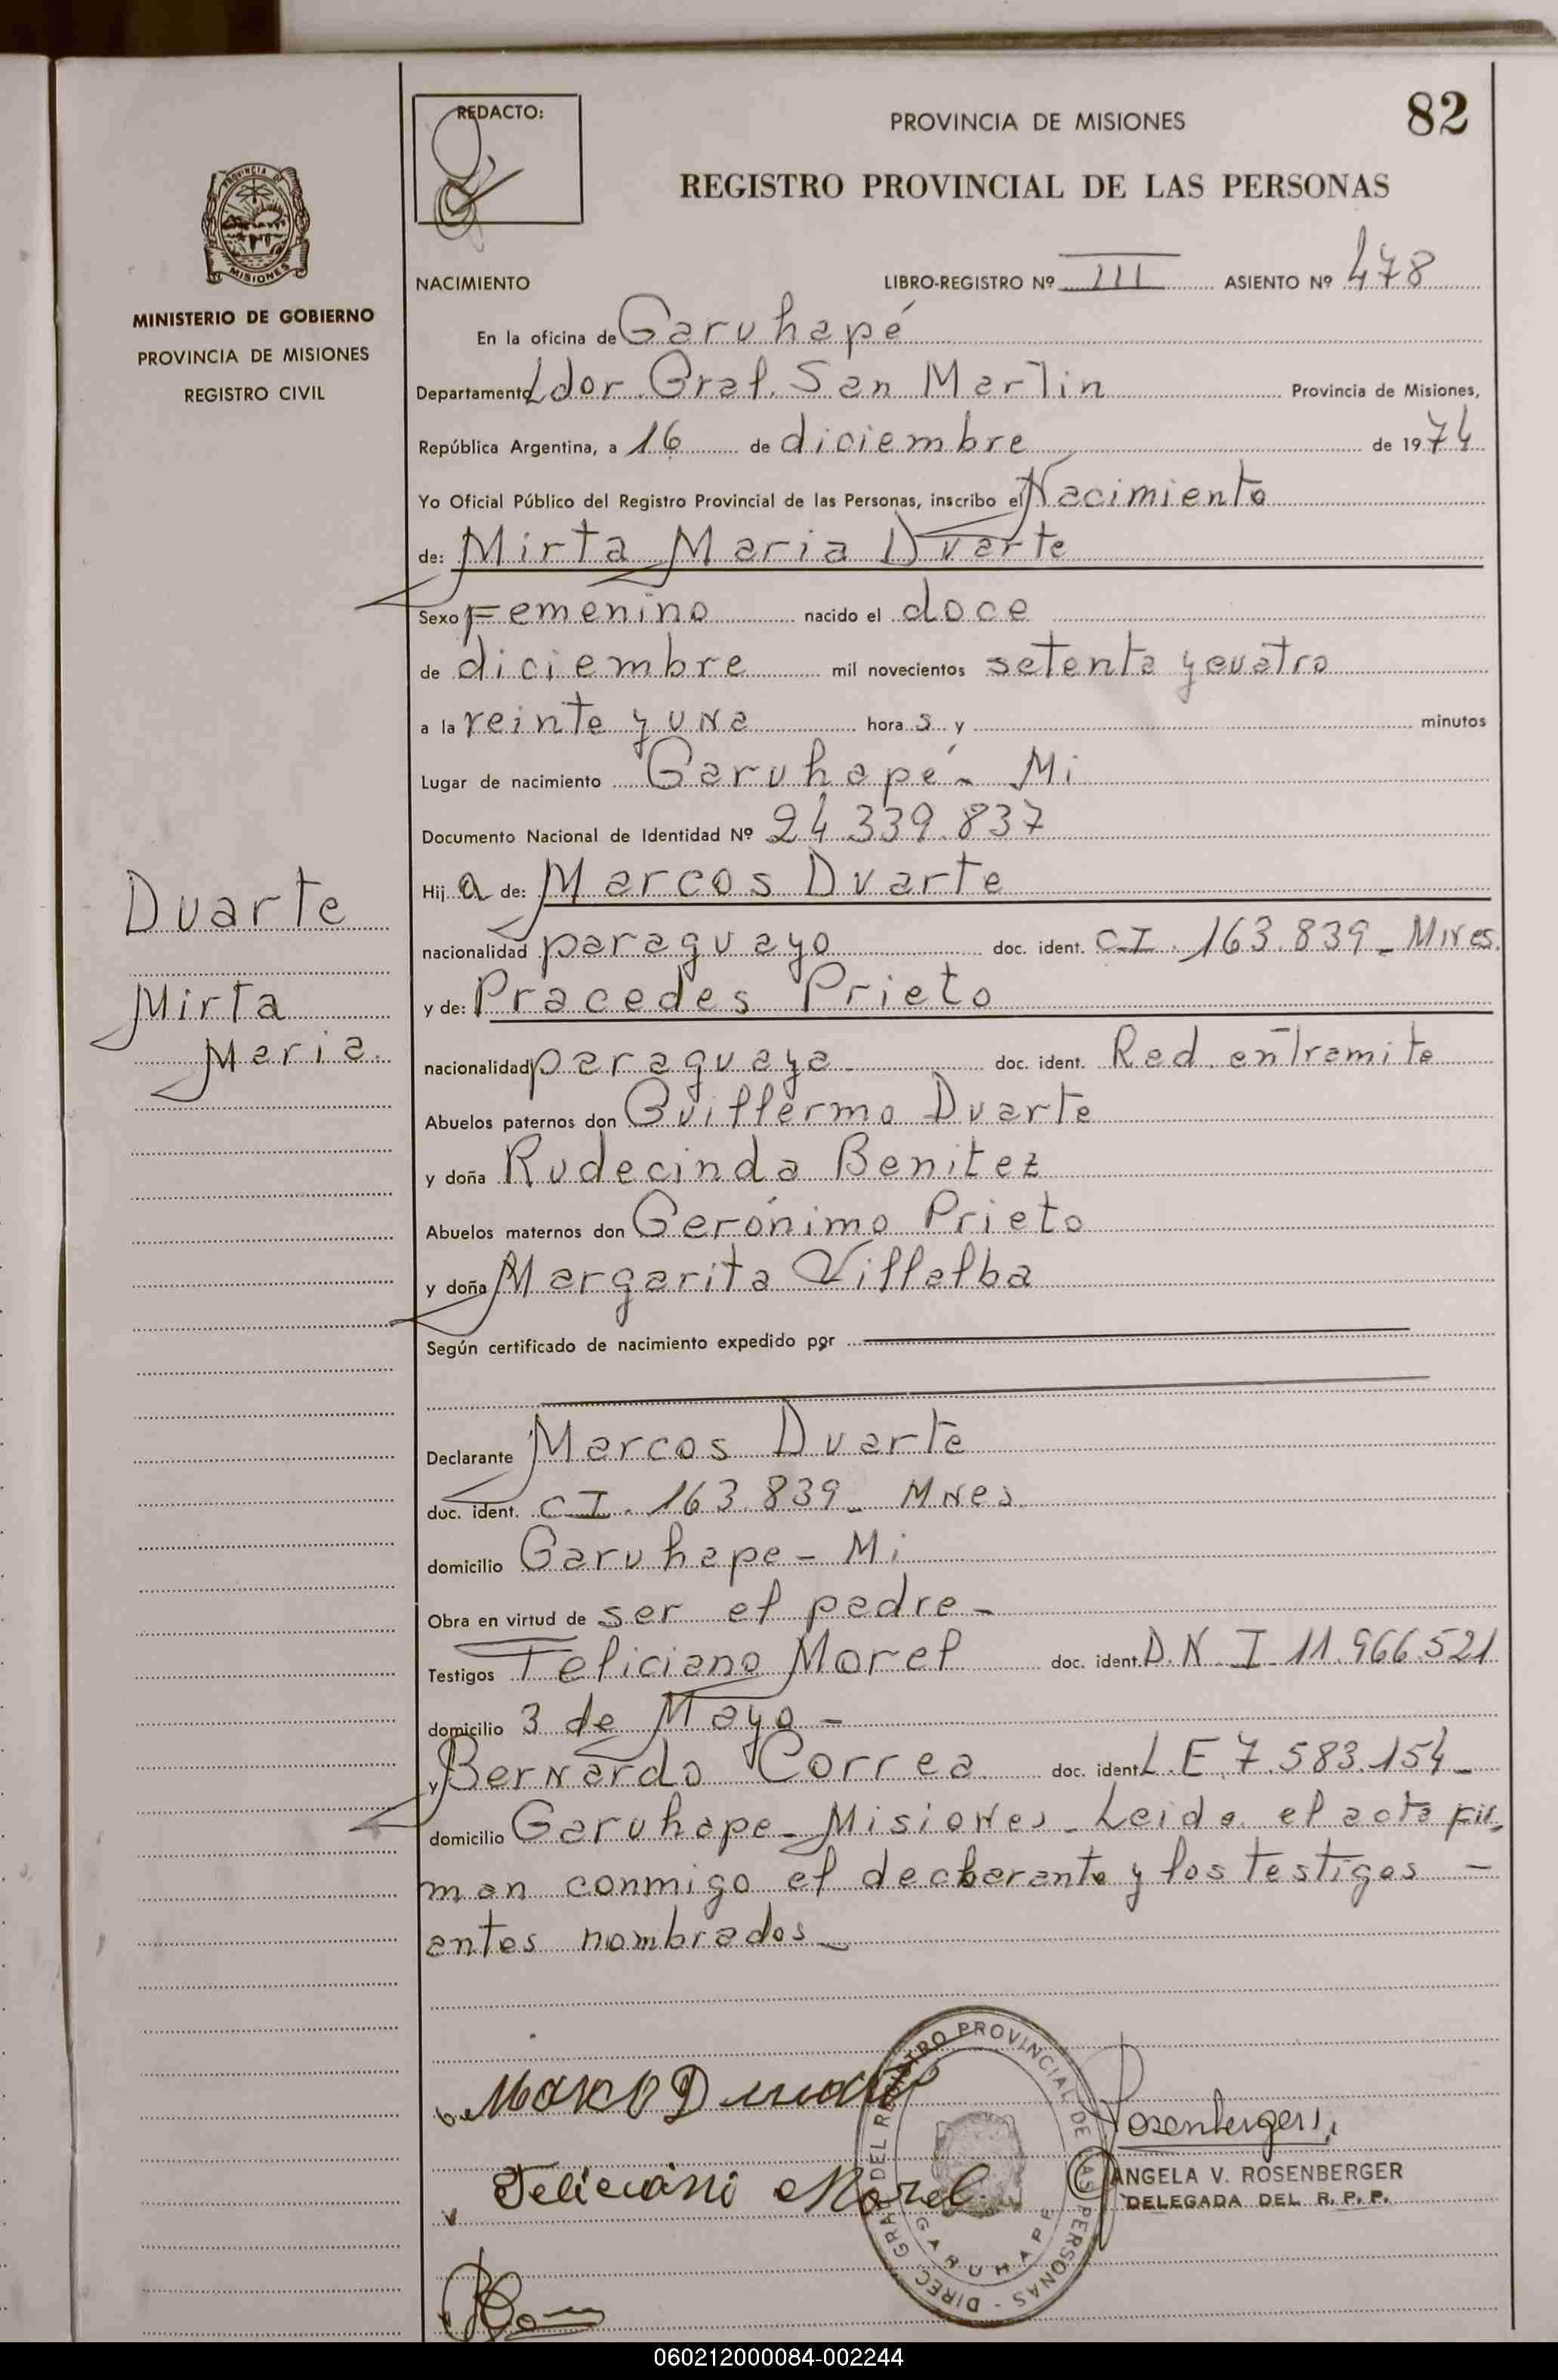 82
REDACTO:
PROVINCIA DE MISIONES
REGISTRO PROVINCIAL DE LAS PERSONAS
PROVINCIA DE
MISIONES
MINISTERIO DE GOBIERNO
PROVINCIA DE MISIONES
REGISTRO CIVIL
NACIMIENTO LIBRO-REGISTRO Nº III ASIENTO Nº 478
En la oficina de Garuhapé
Departamento Ldor. Gral. San Martin Provincia de Misiones,
República Argentina, a 16 de diciembre de 1974
Yo Oficial Público del Registro Provincial de las Personas, inscribo el Nacimiento
de: Mirta Maria Duarte
Sexo Femenino nacido el doce
de diciembre mil novecientos setenta y cuatro
a la veinte y una hora s y minutos
Lugar de nacimiento Garuhapé - Mi
Documento Nacional de Identidad Nº 24.339.837
Hij a de: Marcos Duarte
nacionalidad paraguayo doc. ident. C.I. 163.839 - Mnes.
y de: Pracedes Prieto
nacionalidad paraguaya doc. ident. Rad. en Tramite
Abuelos paternos don Guillermo Duarte
y doña Rudecinda Benitez
Abuelos maternos don Gerónimo Prieto
y doña Margarita Villalba
Según certificado de nacimiento expedido por
Declarante Marcos Duarte
doc. ident. C.I. 163.839 - Mnes
domicilio Garuhape - Mi
Obra en virtud de ser el padre -
Testigos Feliciano Morel doc. ident. D.N.I. 11.966.521
domicilio 3 de Mayo -
y Bernardo Correa doc. ident. L.E. 7.583.154 -
domicilio Garuhape - Misiones - Leida el acta fir-
man conmigo el declarante y los testigos -
antes nombrados -
Duarte
Mirta
Maria.
Feliciano Morel
Rosenberger
DIREC. GRAL. DEL REGISTRO PROVINCIAL DE LAS PERSONAS -
GARUHAPE
ANGELA V. ROSENBERGER
DELEGADA DEL R. P. P.
060212000084-002244